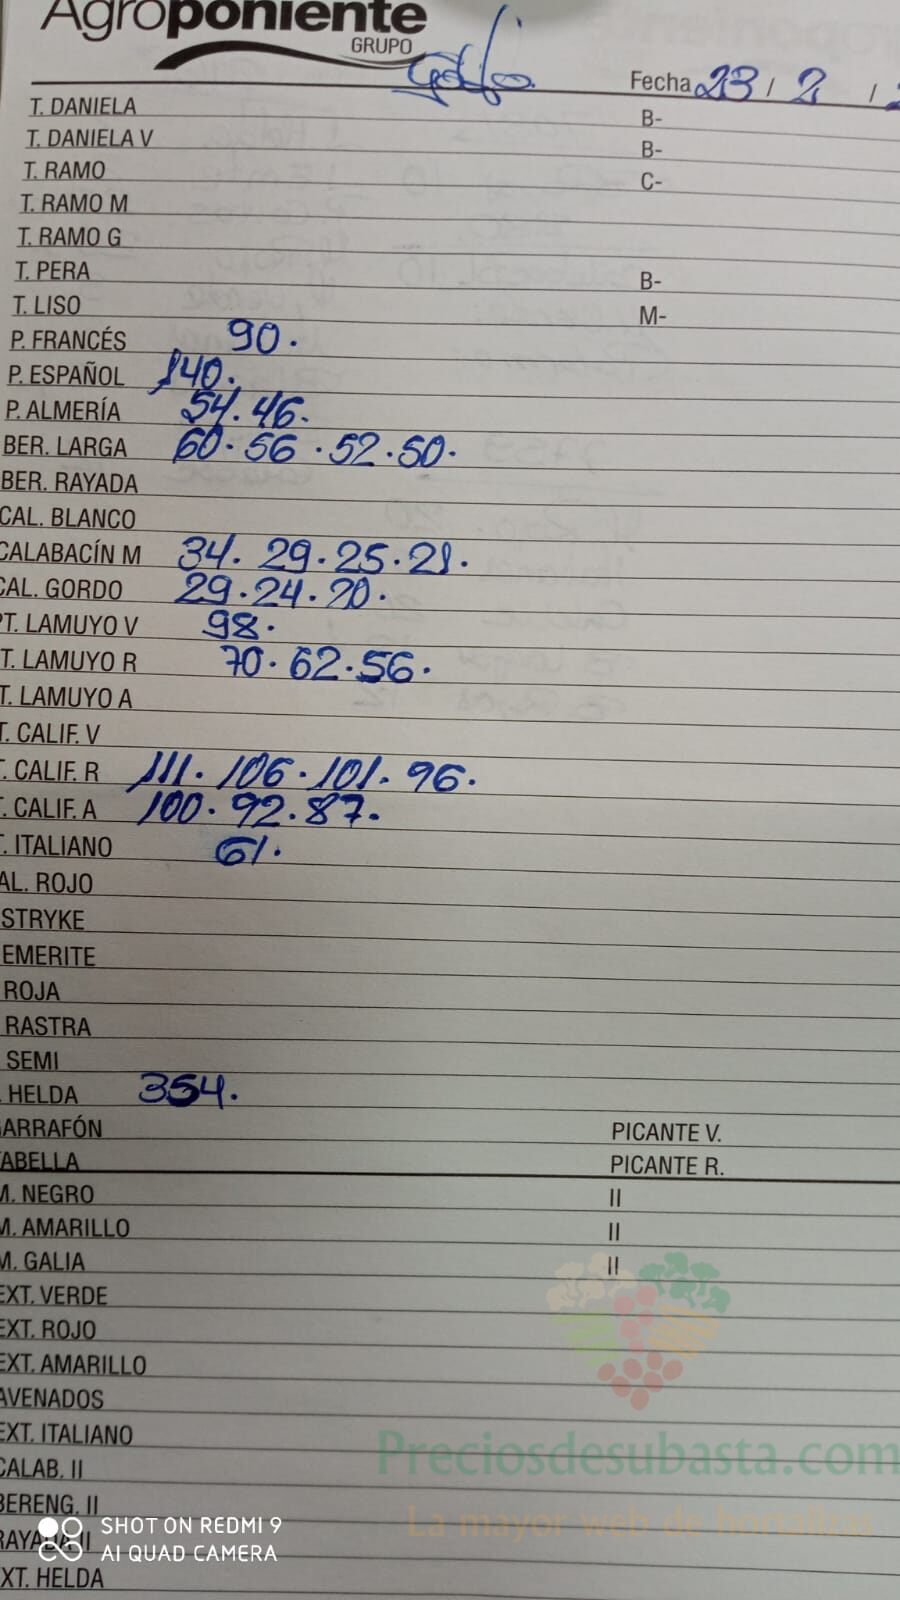 Agroponiente
GRUPO
Fecha 23 / 2 /
T. DANIELA B-
T. DANIELA V B-
T. RAMO C-
T. RAMO M
T. RAMO G
T. PERA B-
T. LISO M-
P. FRANCÉS 90.
P. ESPAÑOL 140.
P. ALMERÍA 54. 46.
BER. LARGA 60. 56 . 52. 50.
BER. RAYADA
CAL. BLANCO
CALABACÍN M 34. 29. 25. 21.
CAL. GORDO 29. 24. 20.
PT. LAMUYO V 98.
T. LAMUYO R 70. 62. 56.
T. LAMUYO A
T. CALIF. V
. CALIF. R 111. 106. 101. 96.
. CALIF. A 100. 92. 87.
T. ITALIANO 61.
AL. ROJO
STRYKE
EMERITE
ROJA
RASTRA
SEMI
. HELDA 354.
GARRAFÓN PICANTE V.
TABELLA PICANTE R.
M. NEGRO II
M. AMARILLO II
M. GALIA II
EXT. VERDE
EXT. ROJO
EXT. AMARILLO
AVENADOS
EXT. ITALIANO
CALAB. II
BERENG. II
RAYADA II
XT. HELDA
Preciosdesubasta.com
La mayor web de hortalizas
SHOT ON REDMI 9
AI QUAD CAMERA